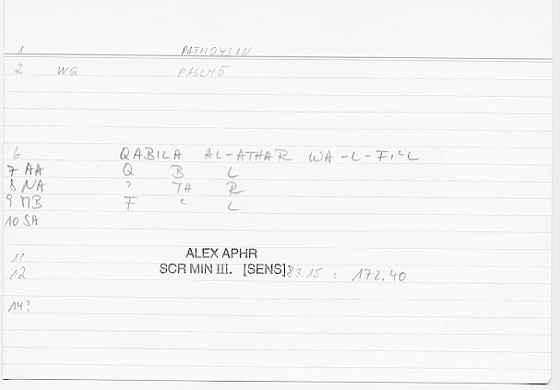 1 PATHOYSIN
2 WQ PASCHŌ
6 QABILA AL-ATHAR WA-L-FIʿL
7 AA Q B L
8 NA ʾ TA R
9 MB F ʿ L
10 SA
11 ALEX APHR
12 SCR MIN III. [SENS] 83.15 : 172.40
14?